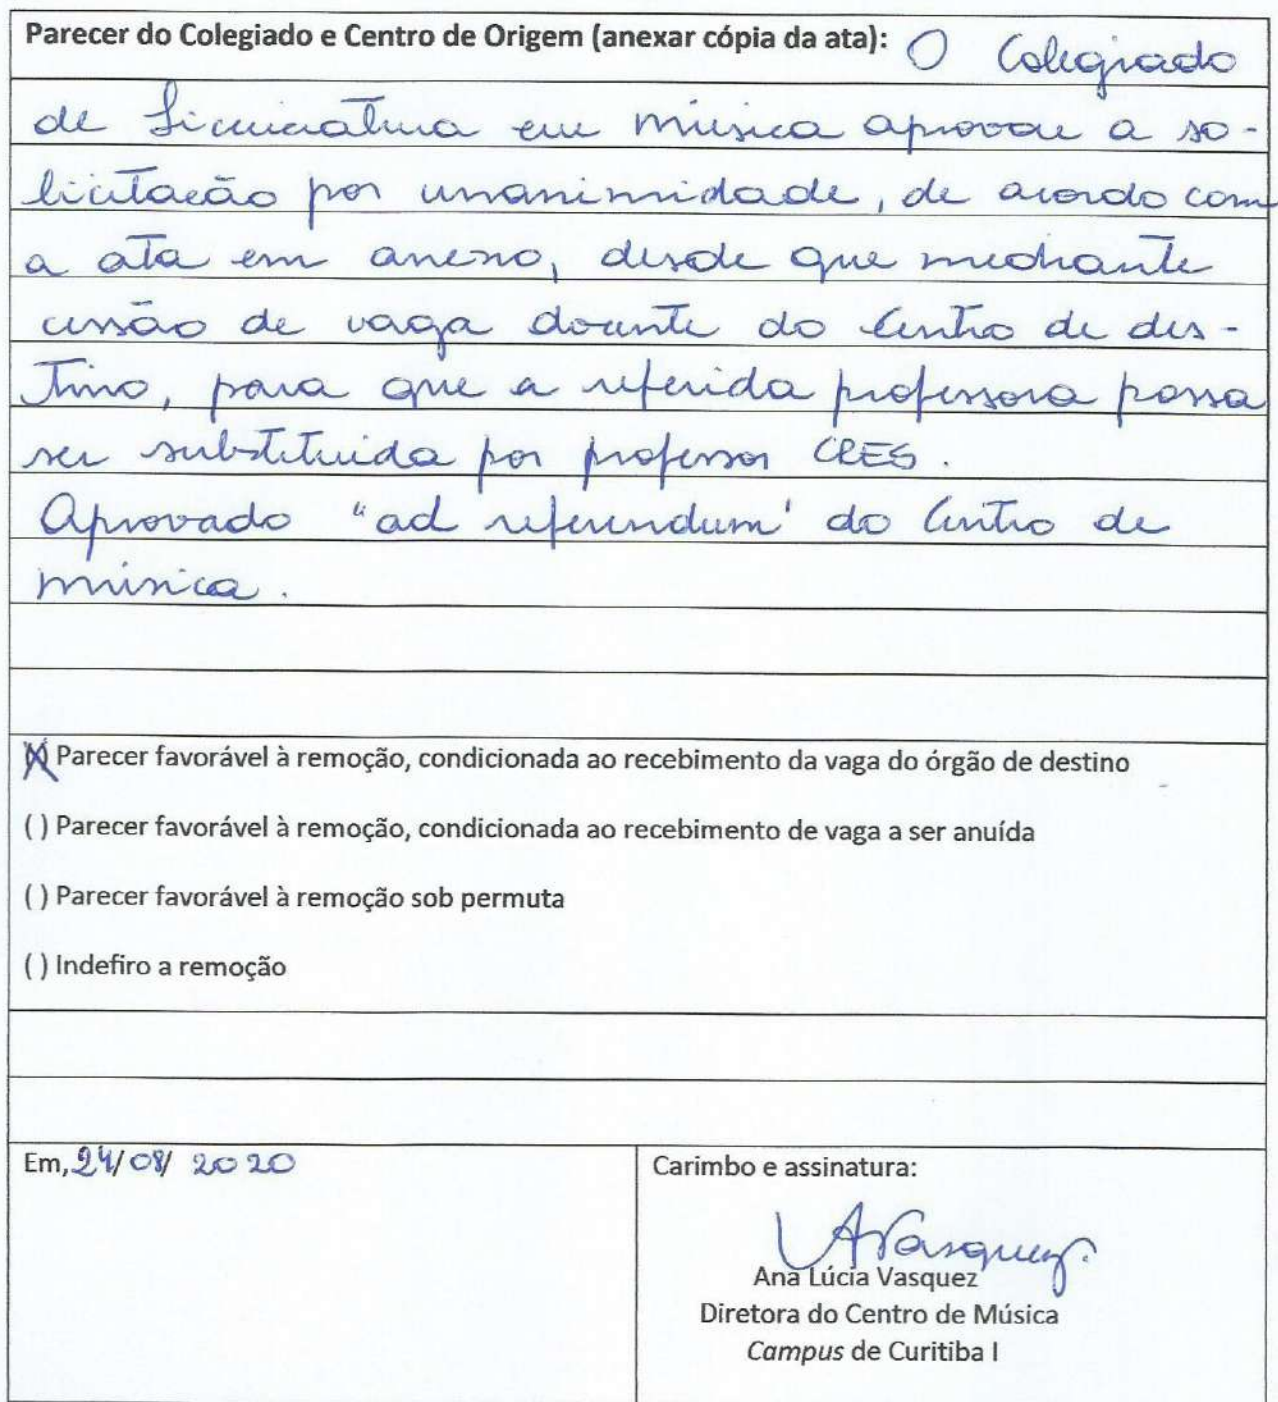 Parecer do Colegiado e Centro de Origem (anexar cópia da ata): O Colegiado
de Licenciatura em música aprovou a so-
licitação por unanimidade, de acordo com
a ata em anexo, desde que mediante
cessão de vaga docente do Centro de des-
tino, para que a referida professora possa
ser substituida por professor CRES.
Aprovado "ad referendum' do Centro de
música.
(X) Parecer favorável à remoção, condicionada ao recebimento da vaga do órgão de destino
( ) Parecer favorável à remoção, condicionada ao recebimento de vaga a ser anuída
( ) Parecer favorável à remoção sob permuta
( ) Indefiro a remoção
Em, 24/08/2020
Carimbo e assinatura:
AVasquez.
Ana Lúcia Vasquez
Diretora do Centro de Música
Campus de Curitiba I